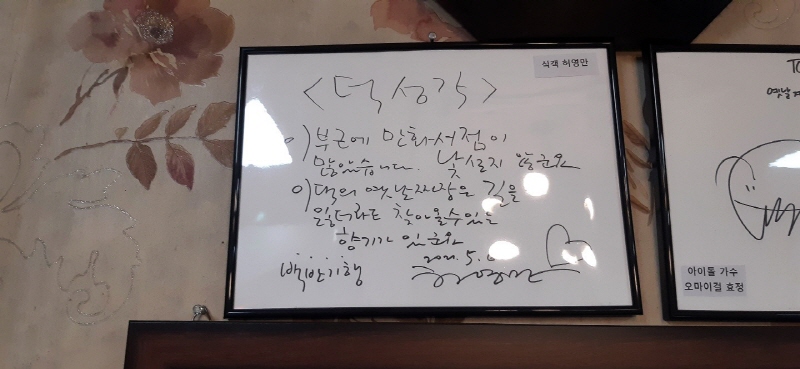 식객 허영만
<덕성각>
이 부근에 만화서점이
많았습니다. 낯설지 않군요
이 댁의 옛날짜장은 길을
잃더라도 찾아올수있는
향기가 있군요
2021. 5.
백반기행
허영만
TO
옛날
아이돌 가수
오마이걸 효정